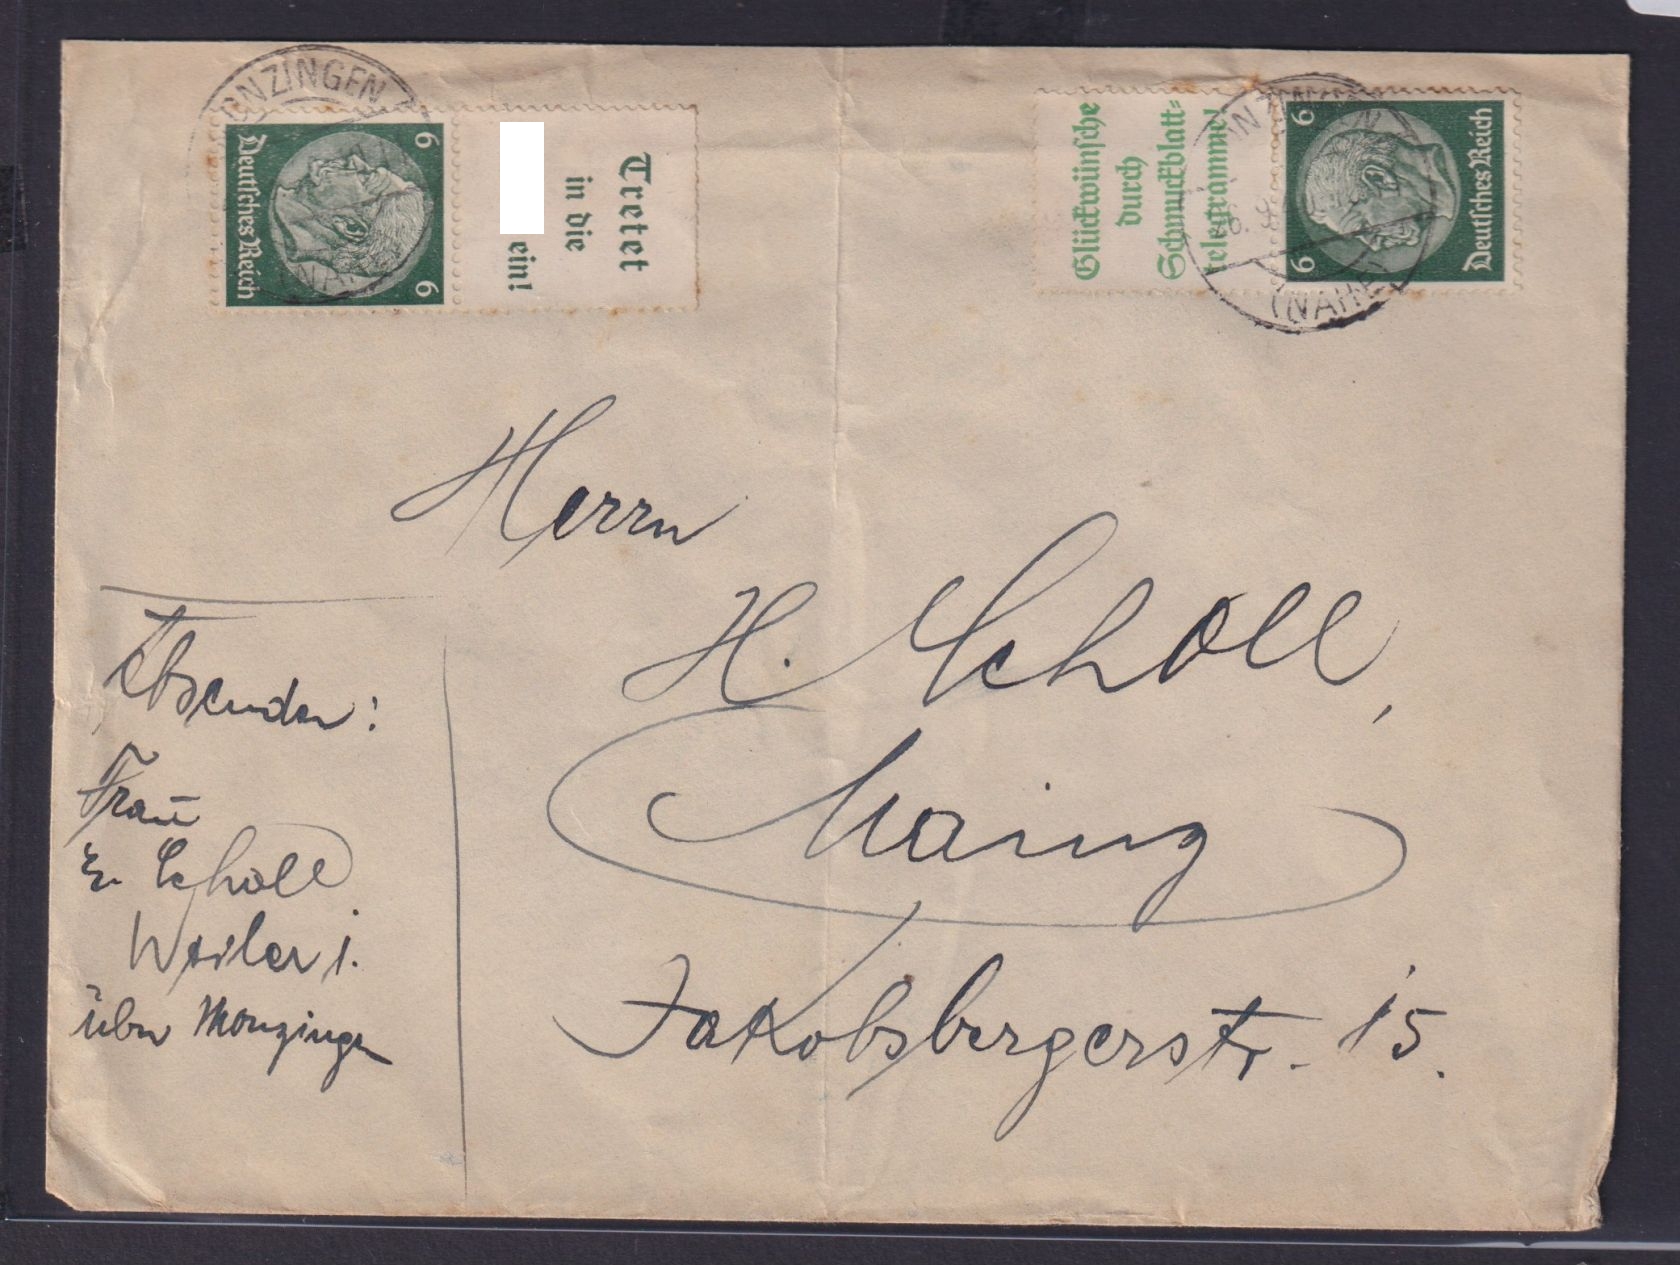 MONZINGEN
(NAHE)
6
6
Deutsches Reich
Tretet
in die
ein!
Glückwünsche
durch
Schmuckblatt=
telegramme!
MONZINGEN
(NAHE)
6
6
Deutsches Reich
Herrn
H. Scholl,
Mainz
Jakobsbergerstr. 15.
Absender:
Frau
E. Scholl
Weiler i.
über Monzingen